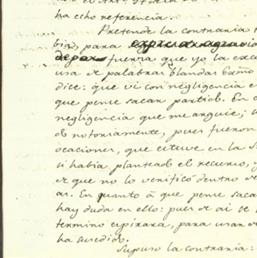 ha echo referencia.
Pretende la contraria
bia, para
fuerza que yo la
usa de palabras blandas como
dice: que vi con negligencia e
que pense sacar partido. En
negligencia que me arguie;
do notoriamente, pues fueron
ocaciones, que estuve en la S
si habia planteado el recurso,
de que no lo verificó dentro de
ar. En quanto á que pense saca
hay duda en ello: pues de ai se
termino espirara, para usar
ha sucedido.
Supuso la contraria: